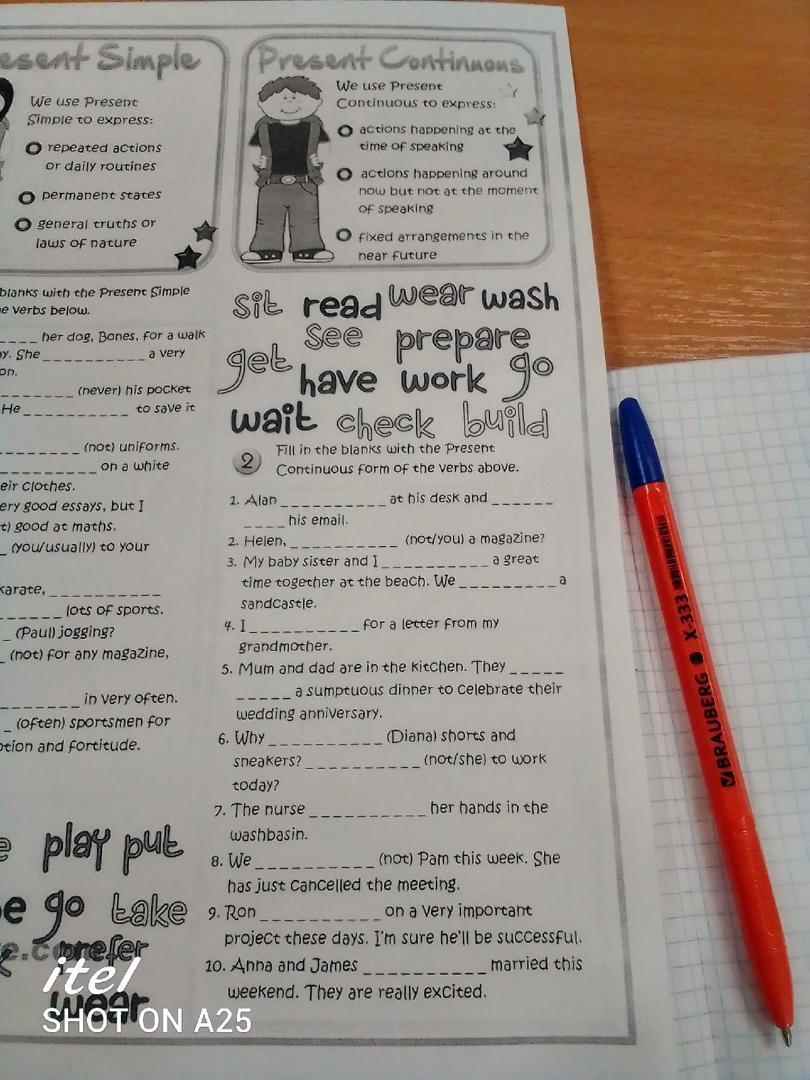 esent Simple
We use Present
Simple to express:
repeated actions
or daily routines
permanent states
general truths or
laws of nature
blanks with the Present Simple
e verbs below.
____ her dog, Bones, for a walk
y. She __________ a very
on.
________ (never) his pocket
He __________ to save it
________ (not) uniforms.
_________ on a white
eir clothes.
ery good essays, but I
t) good at maths.
_ (you/usually) to your
karate, __________
______ lots of sports.
_ (Paul) jogging?
_ (not) for any magazine,
________ in very often.
_ (often) sportsmen for
tion and fortitude.
e play put
e go take
prefer
wear
Present Continuous
We use Present
Continuous to express:
actions happening at the
time of speaking
actions happening around
now but not at the moment
of speaking
fixed arrangements in the
near future
sit read wear wash
see prepare
get have work go
wait check build
2 Fill in the blanks with the Present
Continuous form of the verbs above.
1. Alan __________ at his desk and ______
____ his email.
2. Helen, __________ (not/you) a magazine?
3. My baby sister and I __________ a great
time together at the beach. We _________ a
sandcastle.
4. I __________ for a letter from my
grandmother.
5. Mum and dad are in the kitchen. They _____
_____ a sumptuous dinner to celebrate their
wedding anniversary.
6. Why __________ (Diana) shorts and
sneakers? __________ (not/she) to work
today?
7. The nurse __________ her hands in the
washbasin.
8. We __________ (not) Pam this week. She
has just cancelled the meeting.
9. Ron __________ on a very important
project these days. I'm sure he'll be successful.
10. Anna and James __________ married this
weekend. They are really excited.
BRAUBERG X-333
itel
SHOT ON A25